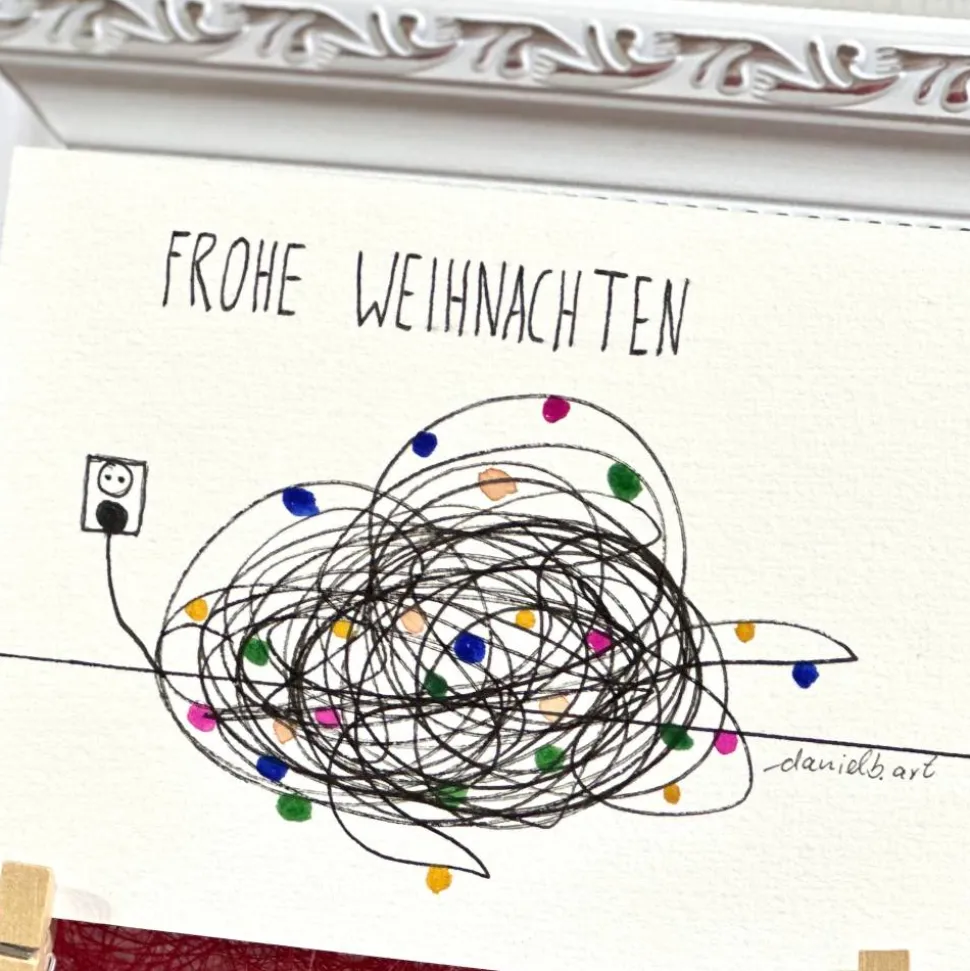 FROHE WEIHNACHTEN
danielb.art